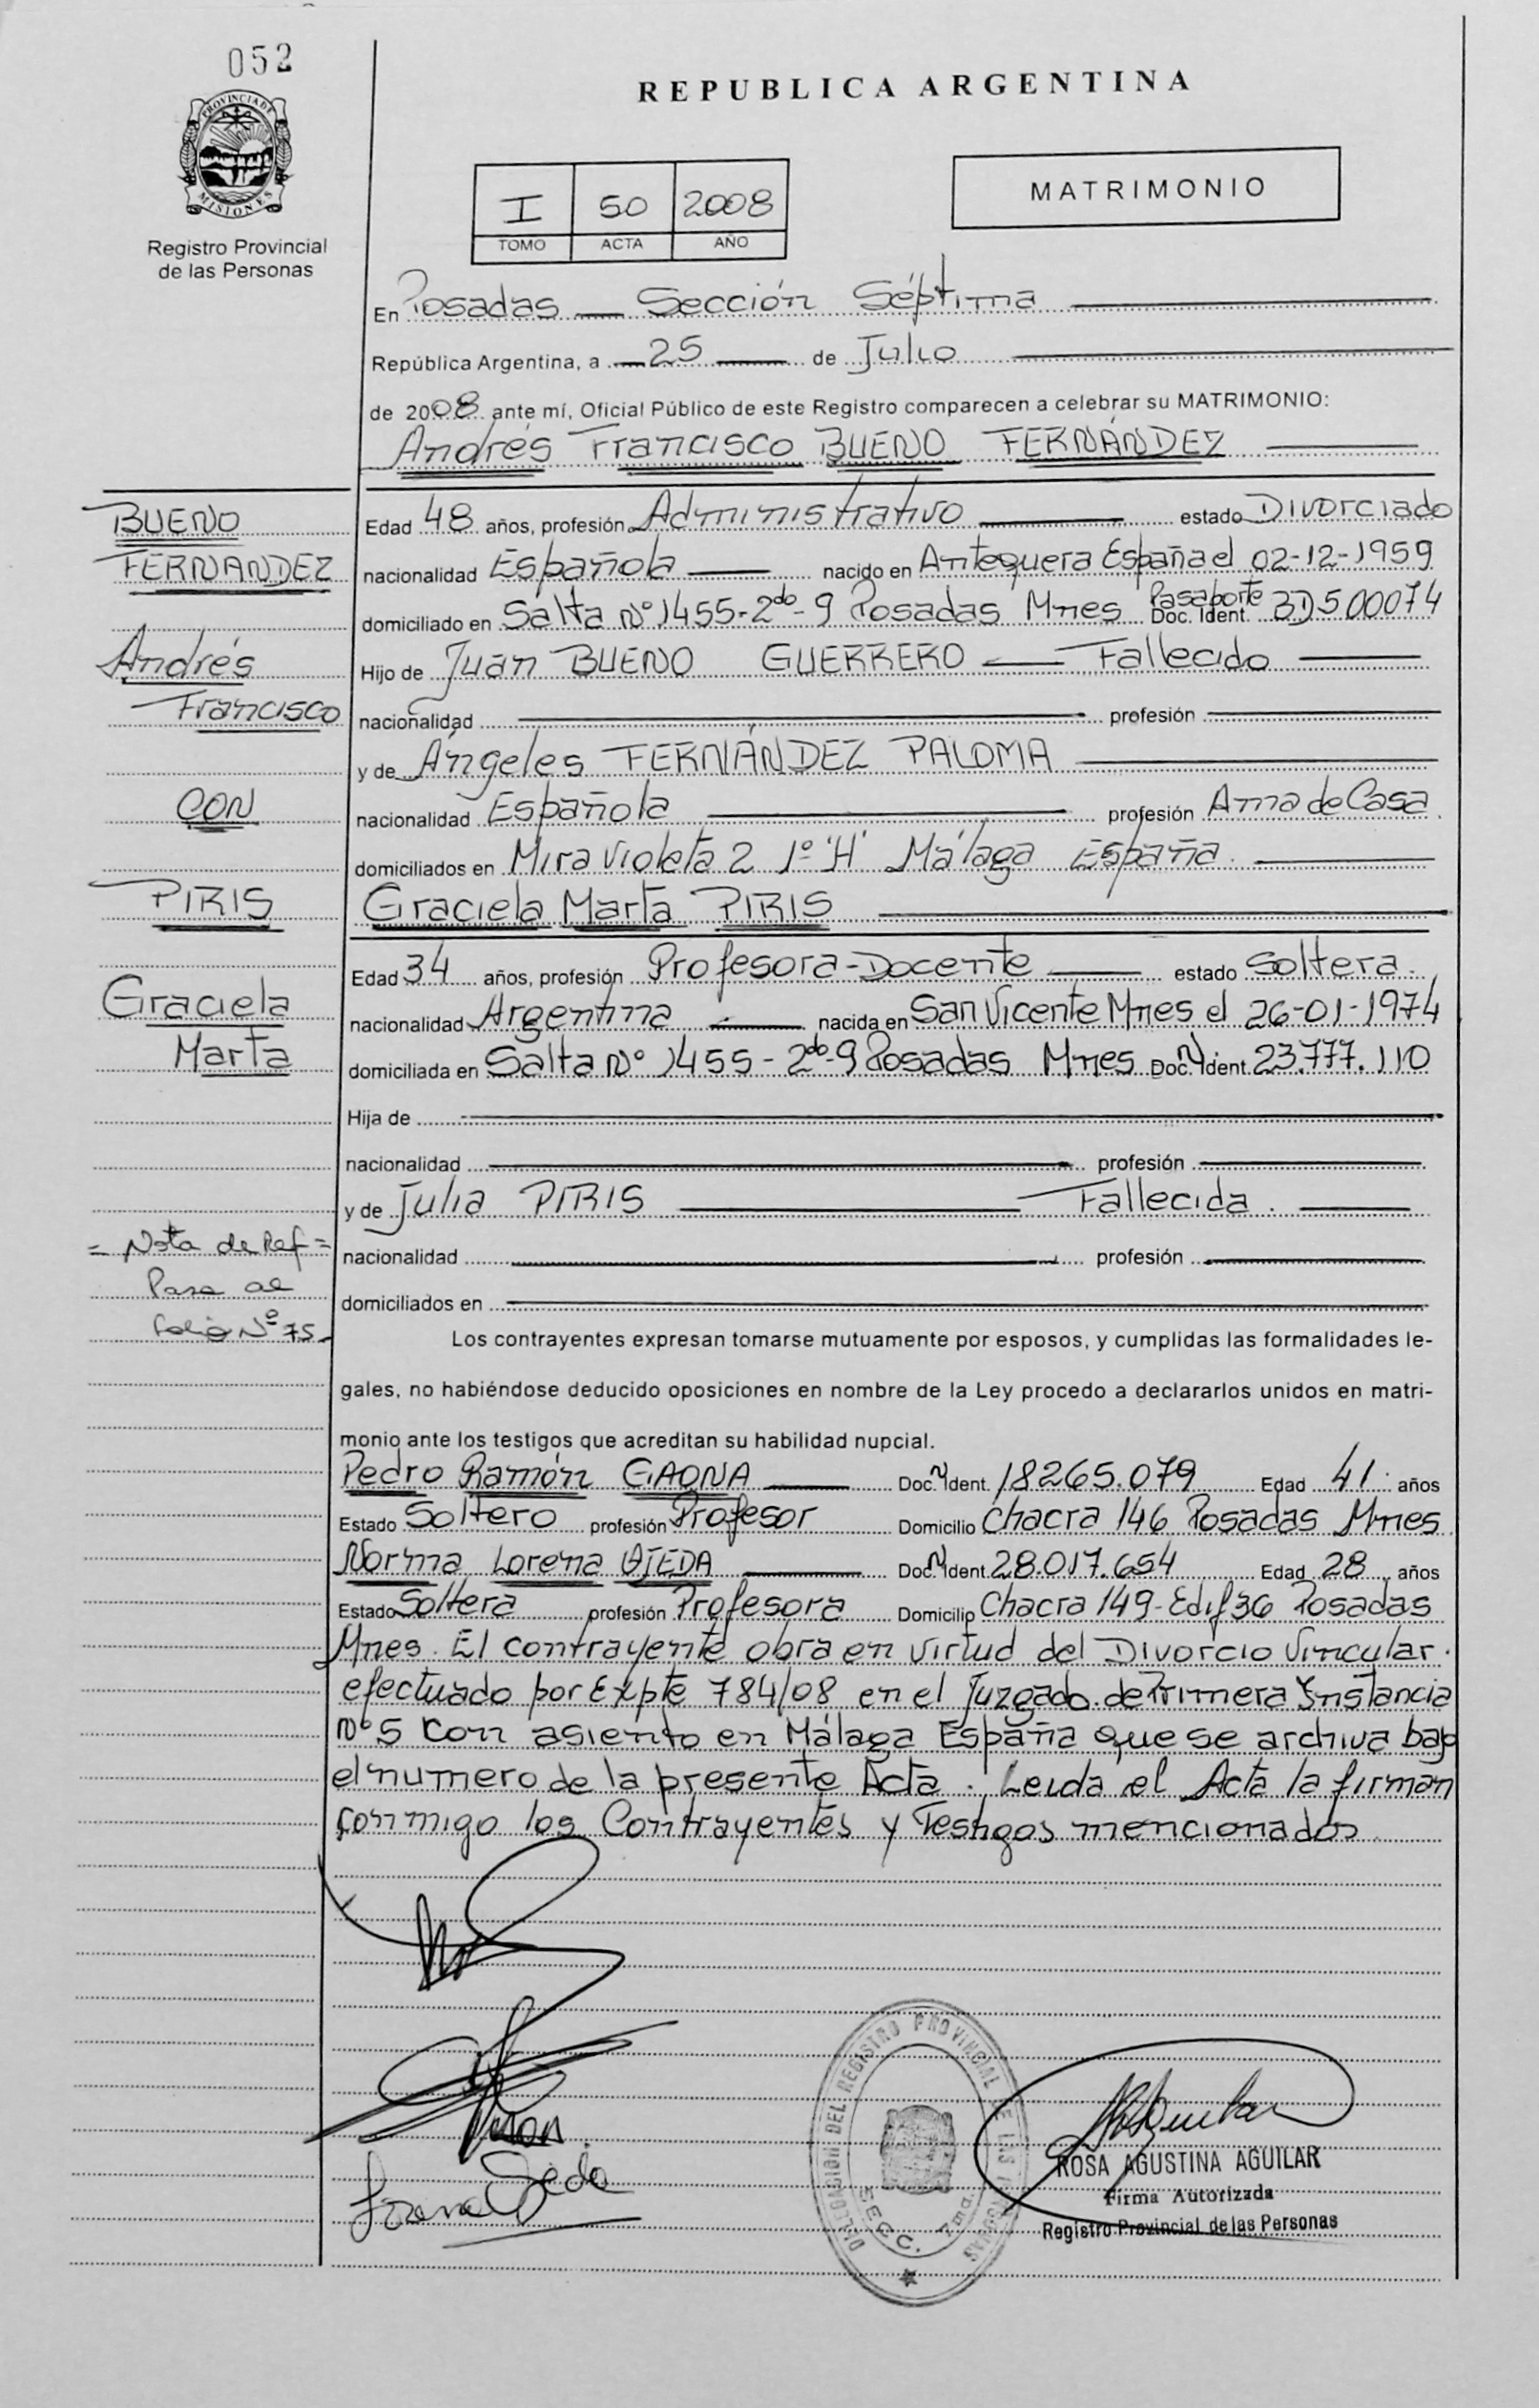 052
PROVINCIA DE
MISIONES
Registro Provincial
de las Personas
REPUBLICA ARGENTINA
I 50 2008
TOMO ACTA AÑO
MATRIMONIO
En Posadas — Sección Séptima
República Argentina, a 25 de Julio
de 2008 ante mí, Oficial Público de este Registro comparecen a celebrar su MATRIMONIO:
Andrés Francisco BUENO FERNÁNDEZ
BUENO
FERNANDEZ
Andrés
Francisco
CON
PIRIS
Graciela
Marta
= Nota de Ref =
Pasa al
folio Nº 75-
Edad 48 años, profesión Administrativo estado Divorciado
nacionalidad Española nacido en Antequera España el 02-12-1959
domiciliado en Salta Nº 1455-2do-9 Posadas Mnes Pasaporte Doc. Ident. BD500074
Hijo de Juan BUENO GUERRERO — Fallecido
nacionalidad profesión
y de Ángeles FERNÁNDEZ PALOMA
nacionalidad Española profesión Ama de Casa
domiciliados en Mira Violeta 2 1º "H" Málaga España.
Graciela Marta PIRIS
Edad 34 años, profesión Profesora-Docente estado Soltera.
nacionalidad Argentina nacida en San Vicente Mnes el 26-01-1974
domiciliada en Salta Nº 1455-2do-9 Posadas Mnes Doc. N. Ident. 23.777.110
Hija de
nacionalidad profesión
y de Julia PIRIS Fallecida.
nacionalidad profesión
domiciliados en
Los contrayentes expresan tomarse mutuamente por esposos, y cumplidas las formalidades le-
gales, no habiéndose deducido oposiciones en nombre de la Ley procedo a declararlos unidos en matri-
monio ante los testigos que acreditan su habilidad nupcial.
Pedro Ramón GAONA Doc. N. Ident. 18265.079 Edad 41 años
Estado Soltero profesión Profesor Domicilio Chacra 146 Posadas Mnes
Norma Lorena OJEDA Doc. N. Ident. 28.017.654 Edad 28 años
Estado Soltera profesión Profesora Domicilio Chacra 149-Edif 36 Posadas
Mnes. El contrayente obra en virtud del Divorcio Vincular.
efectuado por Expte 784/08 en el Juzgado de Primera Instancia
Nº 5 con asiento en Málaga España que se archiva bajo
el numero de la presente Acta. Leida el Acta la firman
conmigo los Contrayentes y Testigos mencionados
DELEGACION DEL REGISTRO PROVINCIAL DE LAS PERSONAS
SECC. 7ma.
ROSA AGUSTINA AGUILAR
Firma Autorizada
Registro Provincial de las Personas